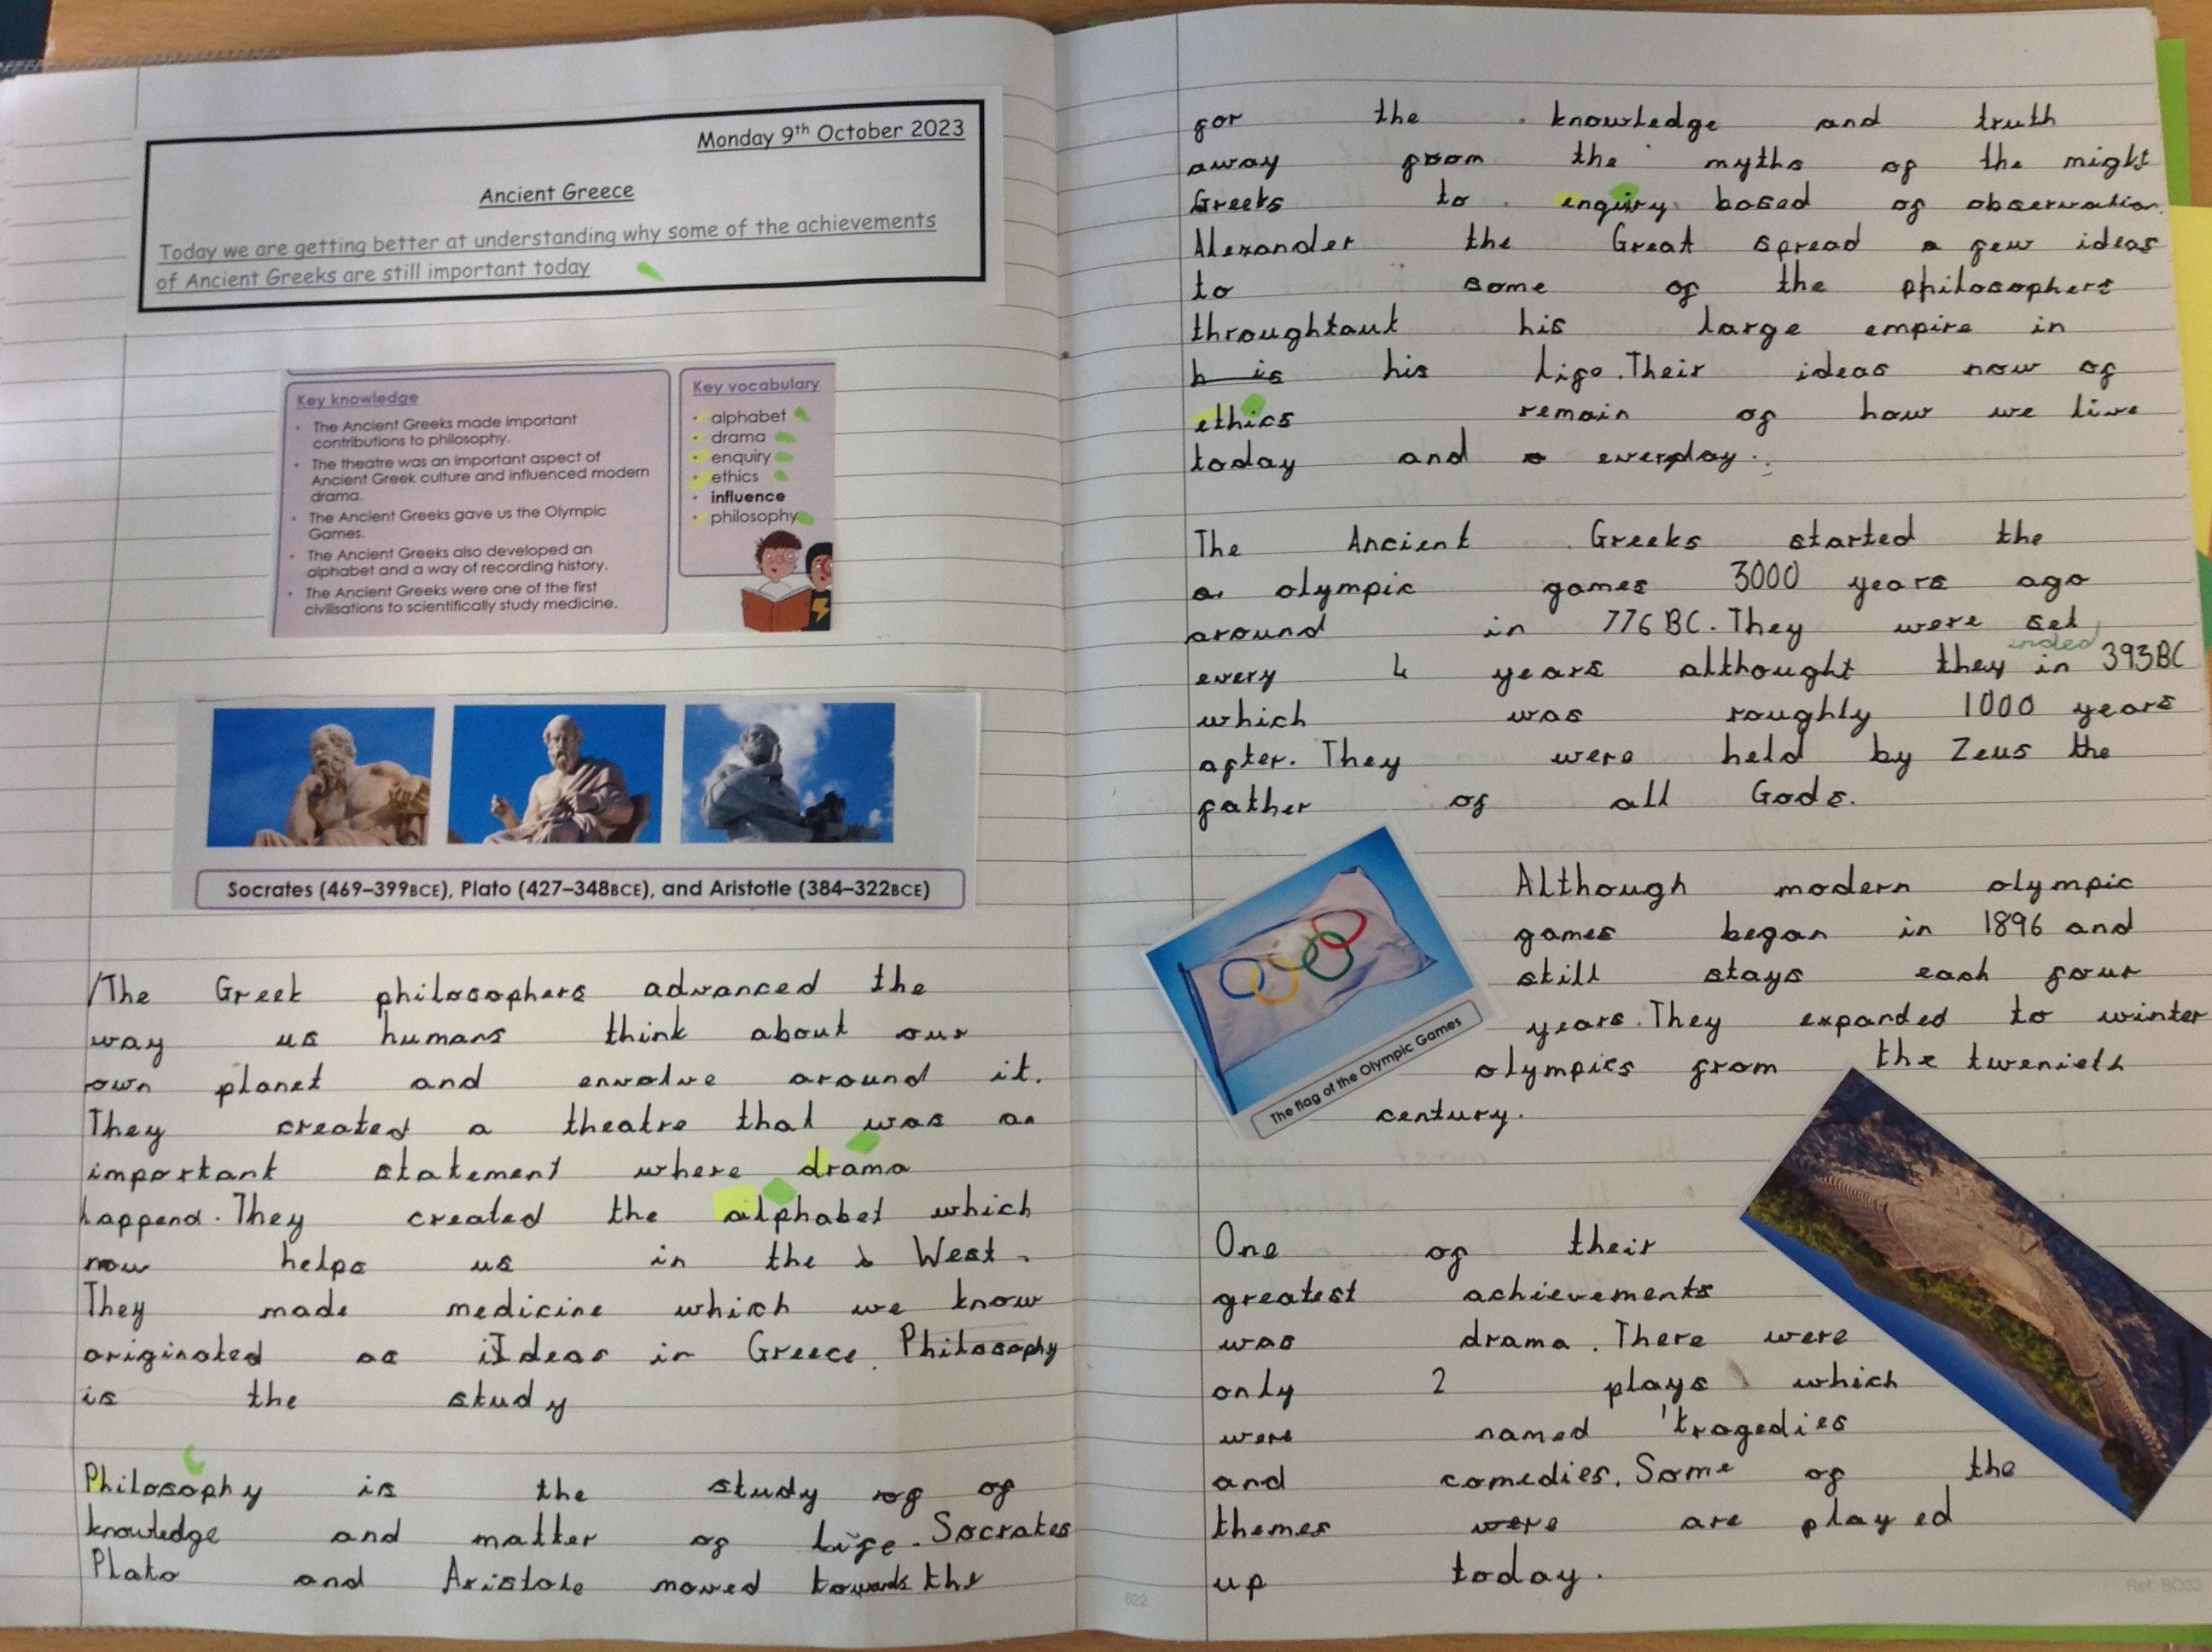 Monday 9th October 2023
Ancient Greece
Today we are getting better at understanding why some of the achievements
of Ancient Greeks are still important today
Key knowledge
• The Ancient Greeks made important
contributions to philosophy.
• The theatre was an important aspect of
Ancient Greek culture and influenced modern
drama.
• The Ancient Greeks gave us the Olympic
Games.
• The Ancient Greeks also developed an
alphabet and a way of recording history.
• The Ancient Greeks were one of the first
civilisations to scientifically study medicine.
Key vocabulary
• alphabet
• drama
• enquiry
• ethics
• influence
• philosophy
Socrates (469–399BCE), Plato (427–348BCE), and Aristotle (384–322BCE)
/The Greek philosophers advanced the
way us humans think about our
own planet and envolve around it.
They created a theatre that was an
important statement where drama
happend. They created the alphabet which
now helps us in the West.
They made medicine which we know
originated as Ideas in Greece. Philosophy
is the study
Philosophy is the study of of
knowledge and matter of life. Socrates
Plato and Aristole moved towards the
for the knowledge and truth
away from the myths of the might
Greeks to enquiry based of observation.
Alexander the Great spread a few ideas
to some of the philosophers
throughtout his large empire in
h is his life. Their ideas now of
ethics remain of how we live
today and everyday.
The Ancient Greeks started the
a olympic games 3000 years ago
around in 776 BC. They were set
every 4 years althought they ended in 393BC
which was roughly 1000 years
after. They were held by Zeus the
father of all Gods.
Although modern olympic
games began in 1896 and
still stays each four
years. They expanded to winter
olympics from the twenieth
century.
The flag of the Olympic Games
One of their
greatest achievements
was drama. There were
only 2 plays which
were named 'tragedies
and comedies. Some of the
themes were are played
up today.
622
Ref: BO32